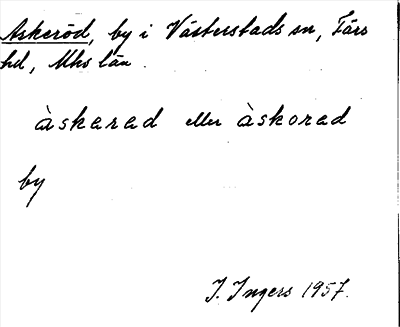 Askeröd, by i Västerstads sn, Färs
hd, Mhs län.
àskarad eller àskorad
by
I. Ingers 1957.